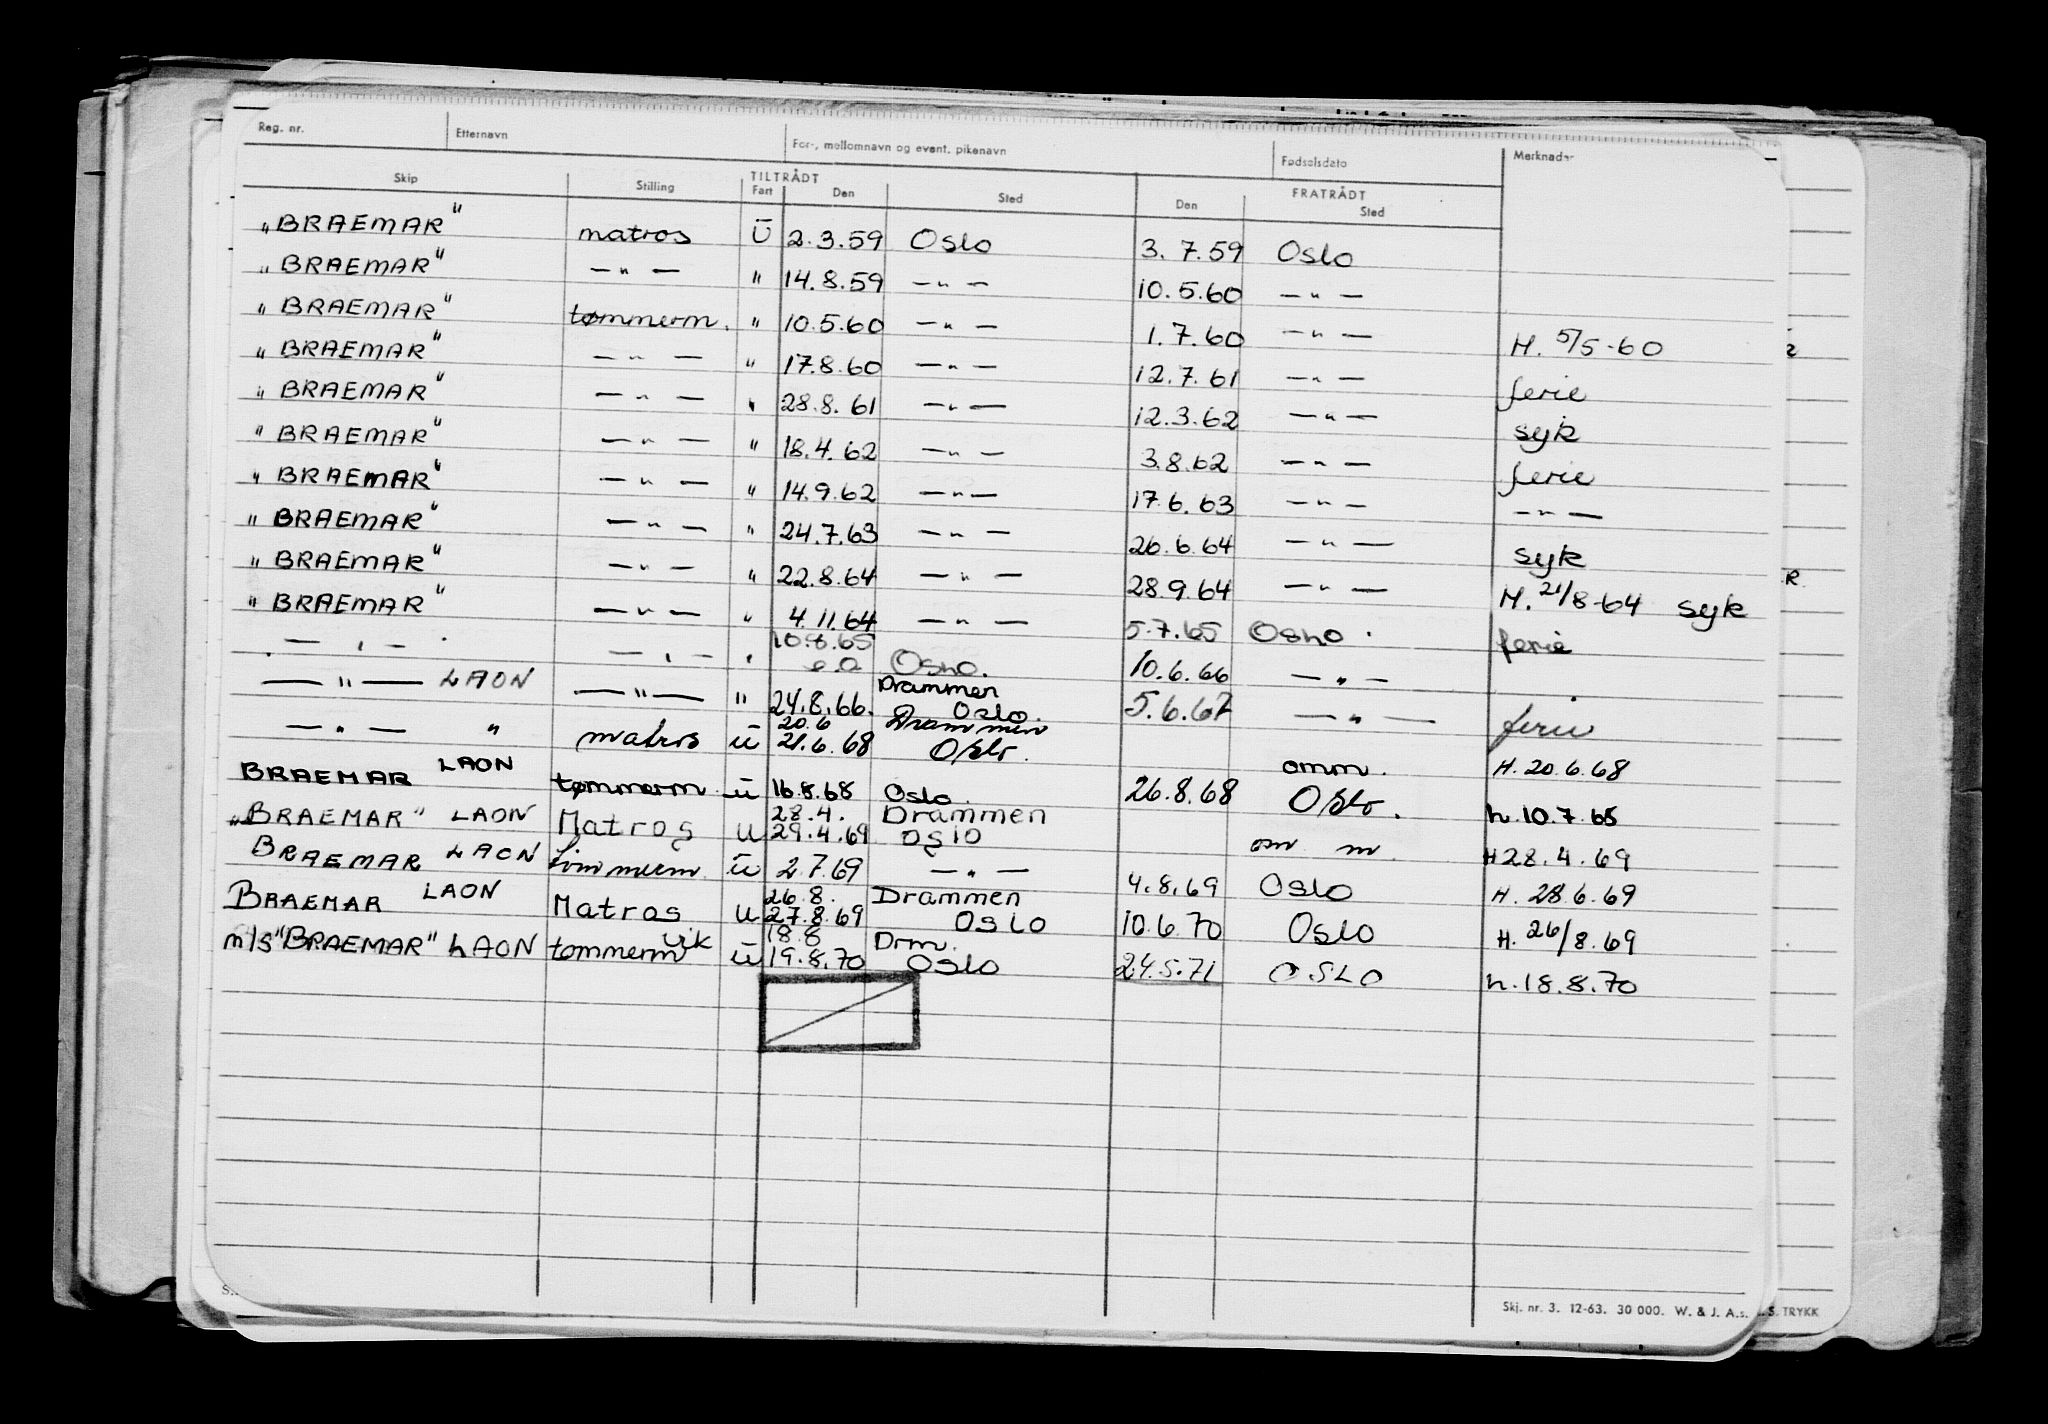 Reg. nr. Etternavn For-, mellomnavn og event. pikenavn Fødselsdato Merknader
Skip Stilling TILTRÅDT Fart Den Sted FRATRÅDT Den Sted
"BRAEMAR" matros U 2.3.59 Oslo 3.7.59 Oslo
"BRAEMAR" — " — " 14.8.59 — " — 10.5.60 — " —
"BRAEMAR" tømmerm. " 10.5.60 — " — 1.7.60 — " — H. 5/5-60
"BRAEMAR" — " — " 17.8.60 — " — 12.7.61 — " — ferie
"BRAEMAR" — " — " 28.8.61 — " — 12.3.62 — " — syk
"BRAEMAR" — " — " 18.4.62 — " — 3.8.62 — " — ferie
"BRAEMAR" — " — " 14.9.62 — " — 17.6.63 — " — — " —
"BRAEMAR" — " — " 24.7.63 — " — 26.6.64 — " — syk
"BRAEMAR" — " — " 22.8.64 — " — 28.9.64 — " — H. 21/8-64 syk
"BRAEMAR" — " — " 4.11.64 — " — 5.7.65 Oslo ferie
— " — — " — " 10.8.65 Oslo. 10.6.66 — " —
— " — LAON — " — " 24.8.66. Drammen Oslo. 5.6.67 — " — ferie
— " — " matros ū 20.6 21.6.68 Drammen Oslo. omm. H. 20.6.68
BRAEMAR LAON tømmerm ū 16.8.68 Oslo. 26.8.68 Oslo. h. 10.7.65
"BRAEMAR" LAON Matros U 28.4. 29.4.69 Drammen Oslo om m. H 28.4.69
BRAEMAR LAON tømmerm ū 2.7.69 — " — 4.8.69 Oslo H. 28.6.69
BRAEMAR LAON Matros U 26.8. 27.8.69 Drammen Oslo 10.6.70 Oslo H. 26/8.69
m/s "BRAEMAR" LAON tømmerm vik ū 18.8 19.8.70 Drm. Oslo 24.5.71 OSLO h. 18.8.70
Skj. nr. 3. 12-63. 30 000. W. & J. A.s. S. TRYKK